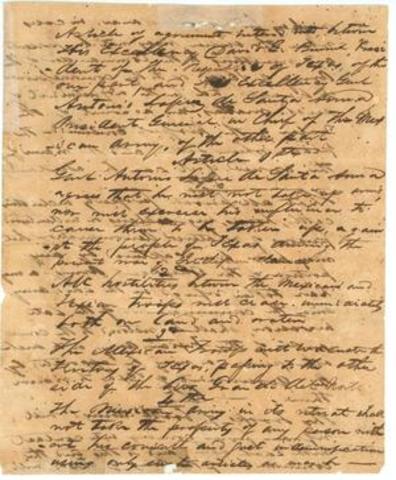 Articles of agreement entered into between
His Excellency David G. Burnet Presi-
dent of the Republic of Texas, of the
one part, and His Excellency Genl
Antonio Lopez de Santa Anna
President General in Chief of the Mex
ican army, of the other part
Article 1st
Genl Antonio Lopez de Santa Anna
agrees that he will not take up arms
nor will exercise his influence to
cause them to be taken up, again
st the people of Texas during the
present war of Independence
2
All hostilities between the Mexican and
Texian troops will cease immediately
both on land and water
3
The Mexican troops will evacuate the
Territory of Texas, passing to the other
side of the Rio Grande del Norte
4th
The Mexican Army in its retreat shall
not take the property of any person with
out his consent and just indemnification
using only such articles as